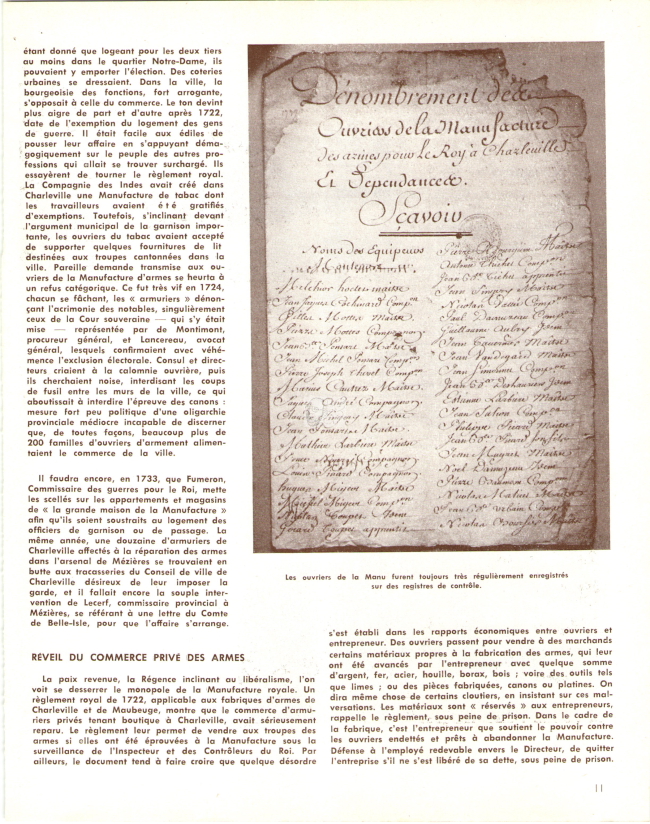 étant donné que logeant pour les deux tiers
au moins dans le quartier Notre-Dame, ils
pouvaient y emporter l'élection. Des coteries
urbaines se dressaient. Dans la ville, la
bourgeoisie des fonctions, fort arrogante,
s'opposait à celle du commerce. Le ton devint
plus aigre de part et d'autre après 1722,
date de l'exemption du logement des gens
de guerre. Il était facile aux édiles de
pousser leur affaire en s'appuyant déma-
gogiquement sur le peuple des autres pro-
fessions qui allait se trouver surchargé. Ils
essayèrent de tourner le règlement royal.
La Compagnie des Indes avait créé dans
Charleville une Manufacture de tabac dont
les travailleurs avaient été gratifiés
d'exemptions. Toutefois, s'inclinant devant
l'argument municipal de la garnison impor-
tante, les ouvriers du tabac avaient accepté
de supporter quelques fournitures de lit
destinées aux troupes cantonnées dans la
ville. Pareille demande transmise aux ou-
vriers de la Manufacture d'armes se heurta à
un refus catégorique. Ce fut très vif en 1724,
chacun se fâchant, les « armuriers » dénon-
çant l'acrimonie des notables, singulièrement
ceux de la Cour souveraine — qui s'y était
mise — représentée par de Montimont,
procureur général, et Lancereau, avocat
général, lesquels confirmaient avec véhé-
mence l'exclusion électorale. Consul et direc-
teurs criaient à la calomnie ouvrière, puis
ils cherchaient noise, interdisant les coups
de fusil entre les murs de la ville, ce qui
aboutissait à interdire l'épreuve des canons :
mesure fort peu politique d'une oligarchie
provinciale médiocre incapable de discerner
que, de toutes façons, beaucoup plus de
200 familles d'ouvriers d'armement alimen-
taient le commerce de la ville.
Il faudra encore, en 1733, que Fumeron,
Commissaire des guerres pour le Roi, mette
les scellés sur les appartements et magasins
de « la grande maison de la Manufacture »
afin qu'ils soient soustraits au logement des
officiers de garnison ou de passage. La
même année, une douzaine d'armuriers de
Charleville affectés à la réparation des armes
dans l'arsenal de Mézières se trouvaient en
butte aux tracasseries du Conseil de ville de
Charleville désireux de leur imposer la
garde, et il fallait encore la souple inter-
vention de Lecerf, commissaire provincial à
Mézières, se référant à une lettre du Comte
de Belle-Isle, pour que l'affaire s'arrange.
Dénombrement des
Ouvriers de la Manufacture
des armes pour le Roy à Charleville
Et Dependances.
Sçavoir
Noms des Equipeurs
Jean Michel Ponsart Comp.on
Pierre Joseph
Claude
Jean Ponsart Maitre
Louis Picard Compagnon
Gerard Toupet apprentis
Les ouvriers de la Manu furent toujours très régulièrement enregistrés
sur des registres de contrôle.
RÉVEIL DU COMMERCE PRIVÉ DES ARMES
La paix revenue, la Régence inclinant au libéralisme, l'on
voit se desserrer le monopole de la Manufacture royale. Un
règlement royal de 1722, applicable aux fabriques d'armes de
Charleville et de Maubeuge, montre que le commerce d'armu-
riers privés tenant boutique à Charleville, avait sérieusement
reparu. Le règlement leur permet de vendre aux troupes des
armes si elles ont été éprouvées à la Manufacture sous la
surveillance de l'Inspecteur et des Contrôleurs du Roi. Par
ailleurs, le document tend à faire croire que quelque désordre
s'est établi dans les rapports économiques entre ouvriers et
entrepreneur. Des ouvriers passent pour vendre à des marchands
certains matériaux propres à la fabrication des armes, qui leur
ont été avancés par l'entrepreneur avec quelque somme
d'argent, fer, acier, houille, borax, bois ; voire des outils tels
que limes ; ou des pièces fabriquées, canons ou platines. On
dira même chose de certains cloutiers, en insistant sur ces mal-
versations. Les matériaux sont « réservés » aux entrepreneurs,
rappelle le règlement, sous peine de prison. Dans le cadre de
la fabrique, c'est l'entrepreneur que soutient le pouvoir contre
les ouvriers endettés et prêts à abandonner la Manufacture.
Défense à l'employé redevable envers le Directeur, de quitter
l'entreprise s'il ne s'est libéré de sa dette, sous peine de prison.
11